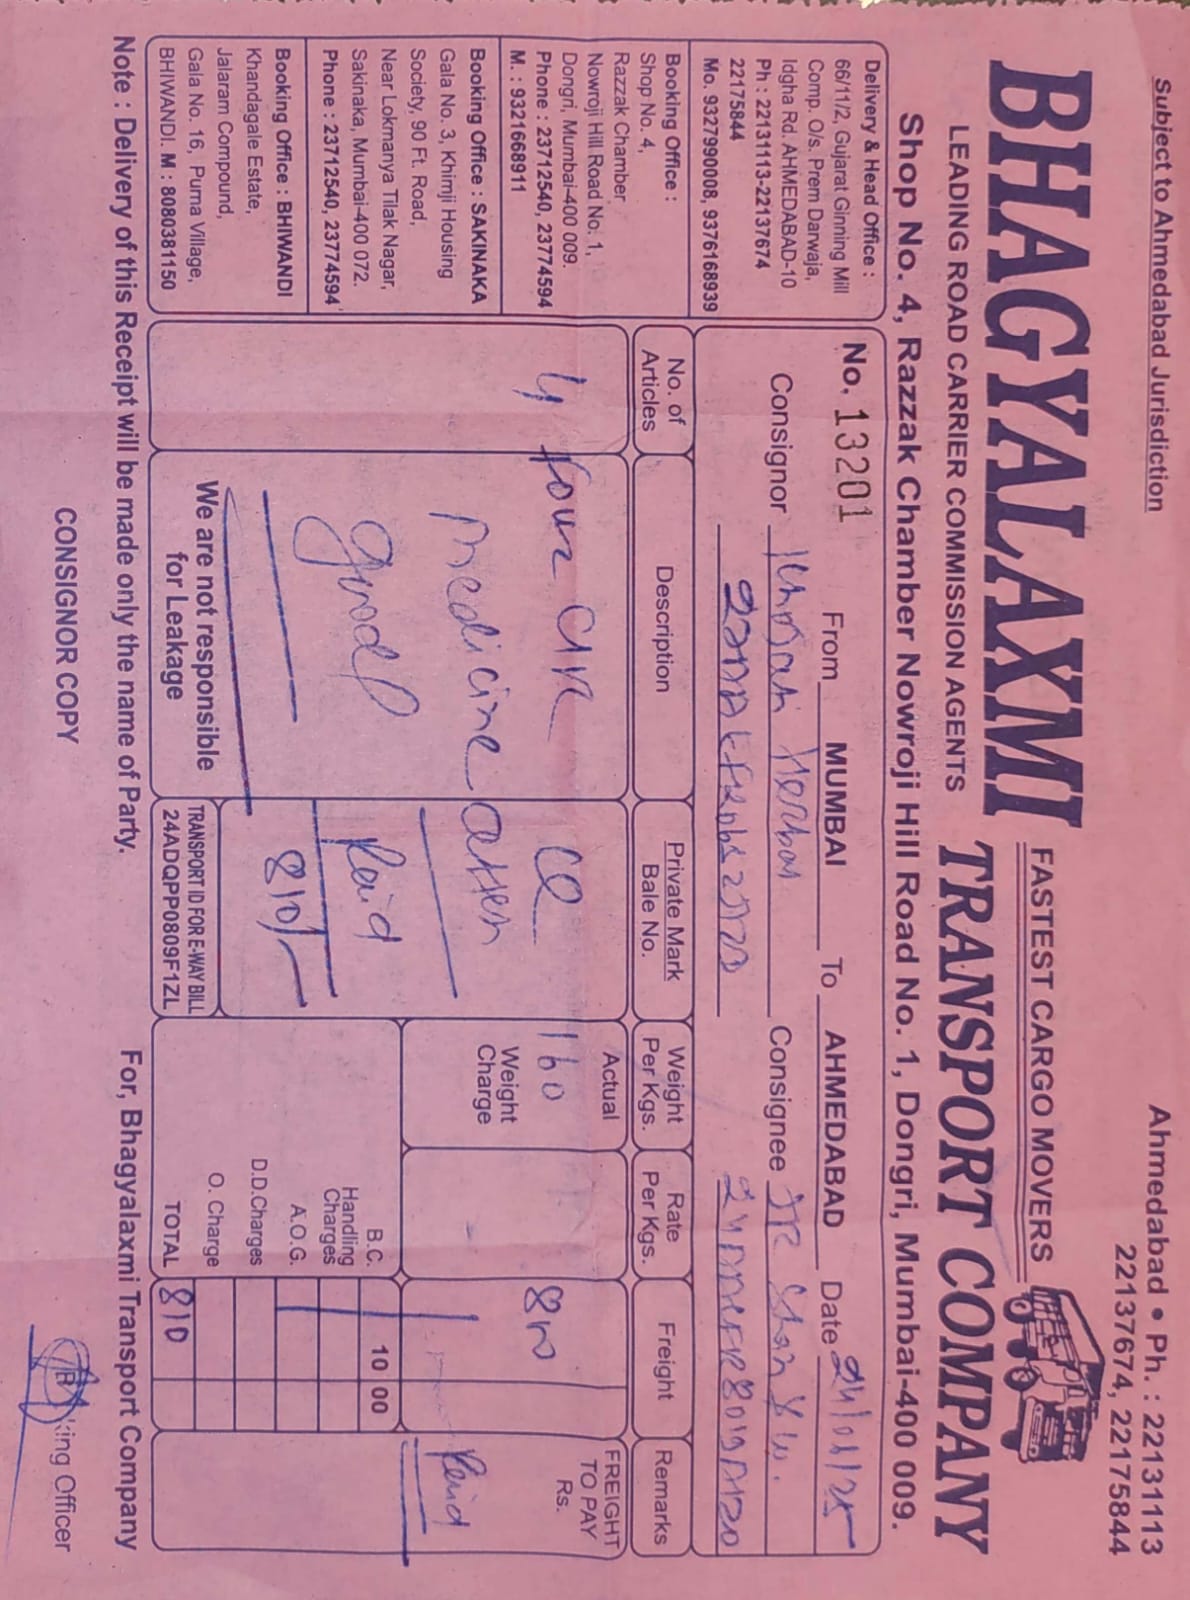 Subject to Ahmedabad Jurisdiction
Ahmedabad • Ph. : 22131113
22137674, 22175844
BHAGYALAXMI
FASTEST CARGO MOVERS
TRANSPORT COMPANY
LEADING ROAD CARRIER COMMISSION AGENTS
Shop No. 4, Razzak Chamber Nowroji Hill Road No. 1, Dongri, Mumbai-400 009.
Delivery & Head Office :
66/11/2, Gujarat Ginning Mill
Comp. O/s. Prem Darwaja,
Idgha Rd. AHMEDABAD-10
Ph : 22131113-22137674
22175844
Mo. 9327990008, 9376168939
Booking Office :
Shop No. 4,
Razzak Chamber
Nowroji Hill Road No. 1,
Dongri, Mumbai-400 009.
Phone : 23712540, 23774594
M. : 9321668911
Booking Office : SAKINAKA
Gala No. 3, Khimji Housing
Society, 90 Ft. Road,
Near Lokmanya Tilak Nagar,
Sakinaka, Mumbai-400 072.
Phone : 23712540, 23774594
Booking Office : BHIWANDI
Khandagale Estate,
Jalaram Compound,
Gala No. 16, Purna Village,
BHIWANDI. M : 8080381150
No. 13201 From MUMBAI To AHMEDABAD Date 24/01/25
Consignor Herbal Consignee
No. of Articles
Description
Private Mark Bale No.
Weight Per Kgs.
Rate Per Kgs.
Freight
Remarks
4 four
medicine
good
We are not responsible
for Leakage
Paid
810/-
TRANSPORT ID FOR E-WAY BILL
24ADQPP0809F1ZL
Actual
160
Weight
Charge
800
FREIGHT
TO PAY
Rs.
Paid
B.C. 10 00
Handling
Charges
A.O.G.
D.D.Charges
O. Charge
TOTAL 810
Note : Delivery of this Receipt will be made only the name of Party.
For, Bhagyalaxmi Transport Company
CONSIGNOR COPY
king Officer